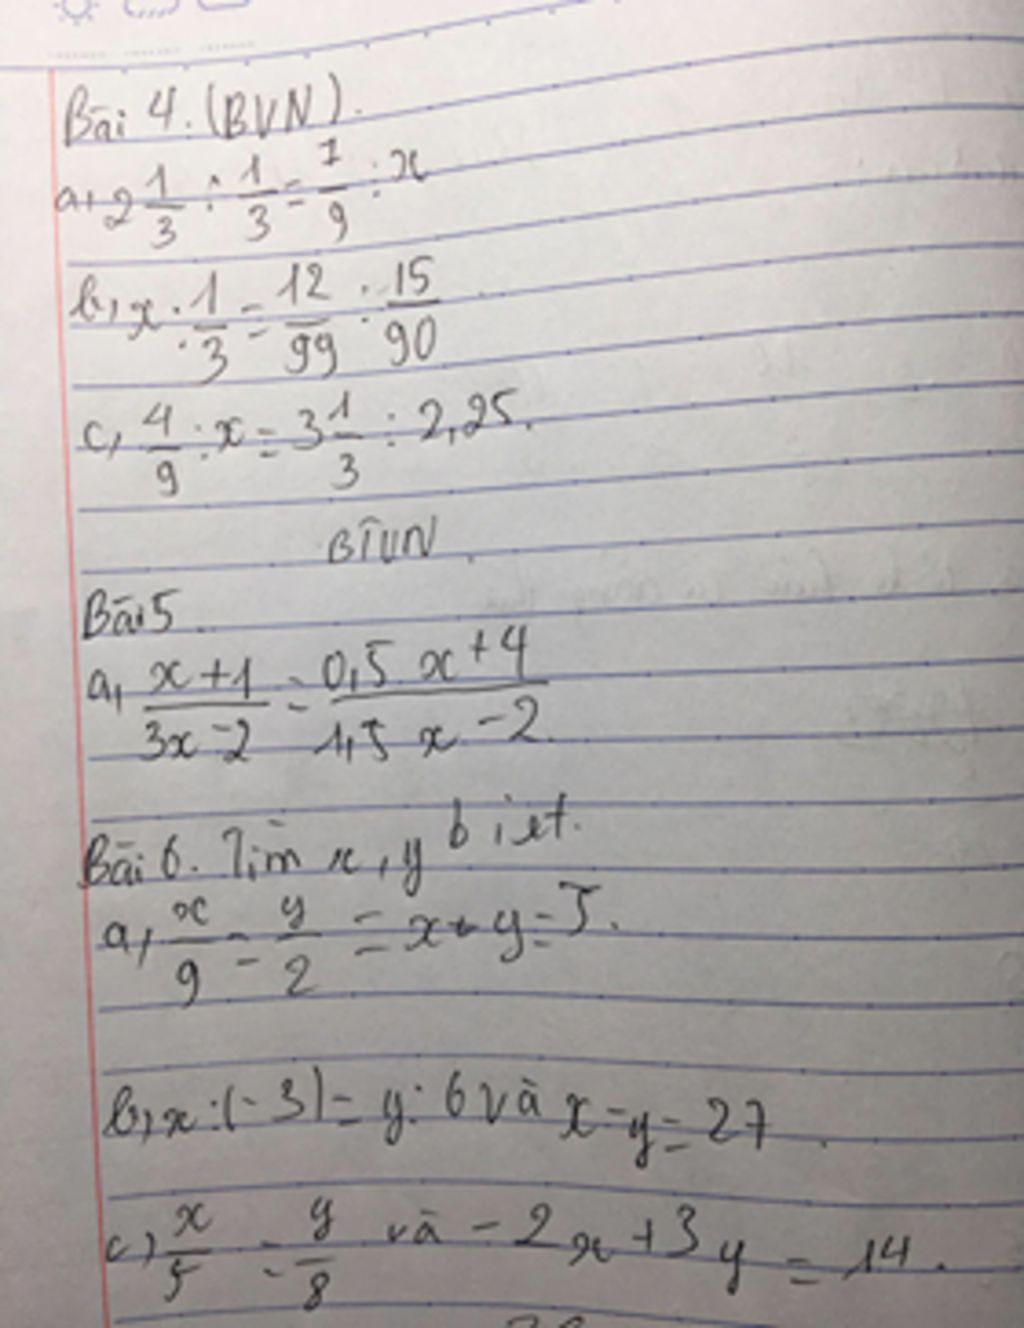 Bài 4. (BVN).
a, 2 1/3 : 1/3 = 7/9 : x
b, x : 1/3 = 12/99 : 15/90
c, 4/9 : x = 3 1/3 : 2,25.
BTVN.
Bài 5
a, (x+1)/(3x-2) = (0,5 x+4)/(1,5 x-2)
Bài 6. Tìm x, y biết.
a, x/9 = y/2 = x+y=5.
b, x:(-3) = y:6 và x-y=27.
c, x/5 = y/8 và -2x+3y = 14.